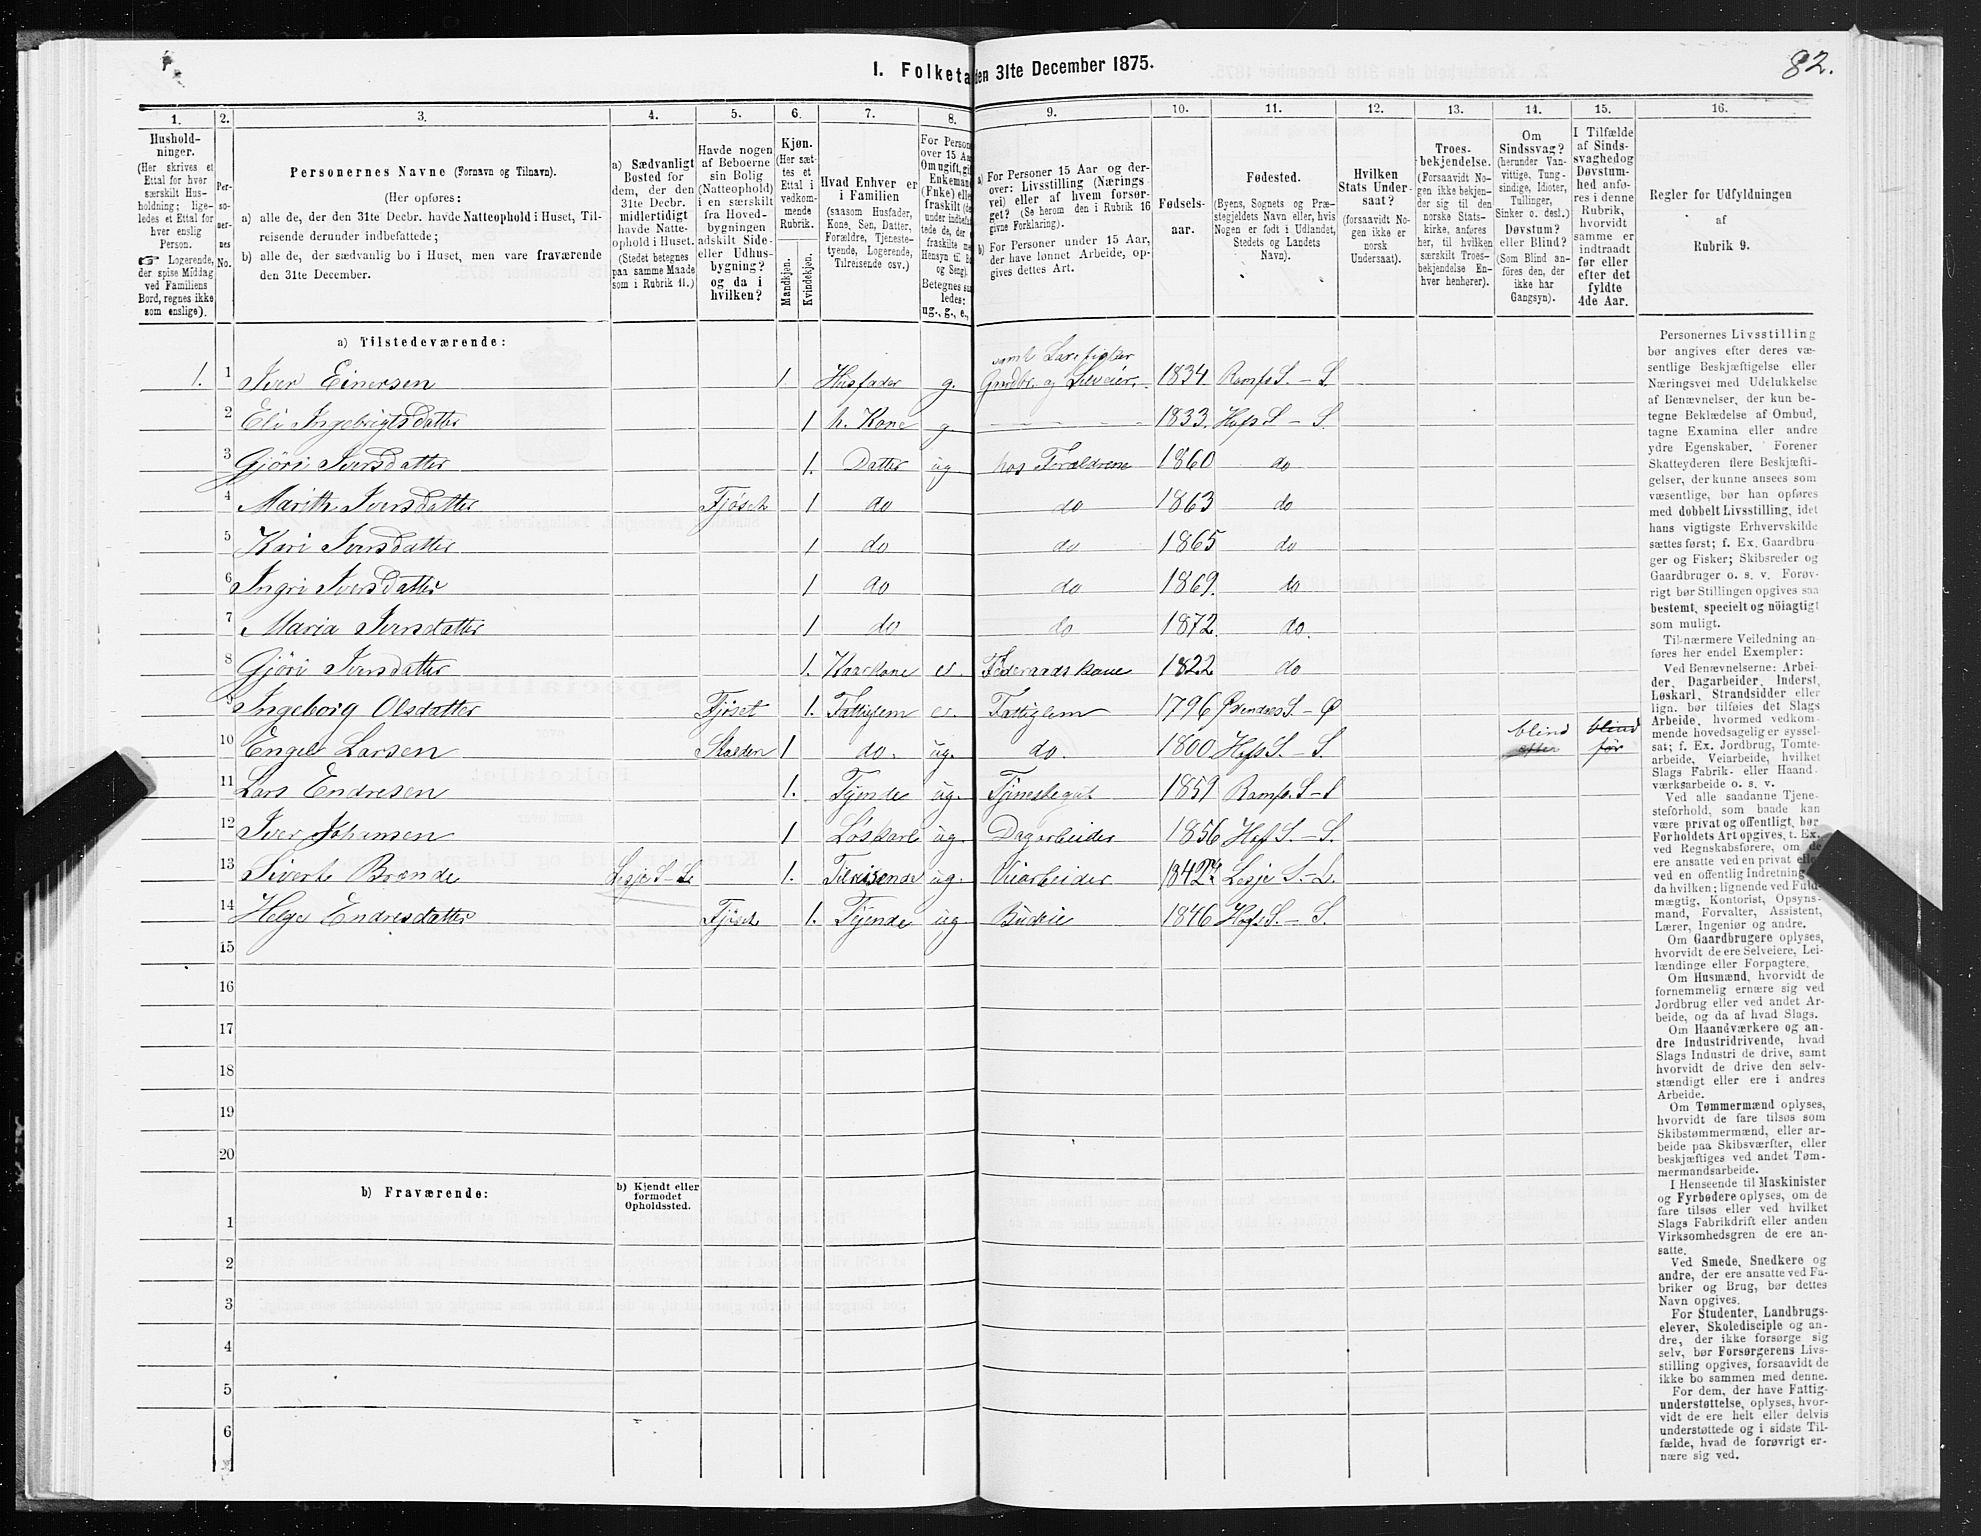 1. Folketa
den 31te December 1875.
82.
1.
2.
3.
4.
5.
6.
7.
8.
9.
10.
11.
12.
13.
14.
15.
16.
Hushold-
ninger.
(Her skrives et
Ettal for hver
særskilt Hus-
holdning; lige-
ledes et Ettal for
hver enslig
Person.
☞ Logerende,
der spise Middag
ved Familiens
Bord, regnes ikke
som enslige).
Per-
so-
ner-
nes
No.
Personernes Navne (Fornavn og Tilnavn).
(Her opføres:
a) alle de, der den 31te Decbr. havde Natteophold i Huset, Til-
reisende derunder indbefattede;
b) alle de, der sædvanlig bo i Huset, men vare fraværende
den 31te December.
a) Sædvanligt
Bosted for
dem, der den
31te Decbr.
midlertidigt
havde Natte-
ophold i Huset.
(Stedet betegnes
paa samme Maade
som i Rubrik 11.)
Havde nogen
af Beboerne
sin Bolig
(Natteophold)
i en særskilt
fra Hoved-
bygningen
adskilt Side-
eller Udhus-
bygning?
og da i
hvilken?
Kjøn.
(Her sæt-
tes et
Ettal i
vedkom-
mende
Rubrik.
Mandkjøn.
Kvindekjøn.
Hvad Enhver er
i Familien
(saasom Husfader,
Kone, Søn, Datter,
Forældre, Tjeneste-
tyende, Logerende,
Tilreisende osv.)
For Person
over 15 Aa
Om ugift, gi
Enkeman
(Fnke) elle
fraskilt (de
under indbefat
tede de, der
fraskilte me
Hensyn til B
og Seng).
Betegnes saa
ledes:
ug., g., e.,
a) For Personer 15 Aar og der-
over: Livsstilling (Nærings
vei) eller af hvem forsør-
get? (Se herom den i Rubrik 16
givne Forklaring).
b) For Personer under 15 Aar,
der have lønnet Arbeide, op-
gives dettes Art.
Fødsels-
aar.
Fødested.
(Byens, Sognets og Præ-
stegjeldets Navn eller, hvis
Nogen er født i Udlandet,
Stedets og Landets
Navn).
Hvilken
Stats Under-
saat?
(forsaavidt No-
gen ikke er
norsk
Undersaat).
Troes-
bekjendelse.
(Forsaavidt No-
gen ikke bekjen-
der sig til den
norske Stats-
kirke, anføres
her, til hvilken
særskilt Troes-
bekjendelse En-
hver henhører).
Om
Sindssvag?
(herunder Van-
vittige, Tung-
sindige, Idioter,
Tullinger,
Sinker o. desl.)
Døvstum?
eller Blind?
(Som Blind an-
føres den, der
ikke har
Gangsyn).
I Tilfælde
af Sinds-
svaghedog
Døvstum-
hed anfø-
res i denne
Rubrik,
hvorvidt
samme er
indtraadt
før eller
efter det
fyldte
4de Aar.
Regler for Udfyldningen
af
Rubrik 9.
a) Tilstedeværende:
samt Laxefisker
1. 1 Iver Einersen 1. Husfader g. Gardbr. og Selveier. 1834 Romfs S. - S.
2 Eli Ingebrigtsdatter 1 h. Kone g 1833. Hofs S - S.
3 Gjöri Iversdatter 1. Datter ug hos Forældrene 1860 do
4 Marith Iversdatter Fjöset 1 do do 1863 do
5 Kari Iversdatter 1 do do 1865 do
6 Ingri Iversdatter 1 do do 1869. do
7 Maria Iversdatter 1 do do 1872. do.
8 Gjöri Iversdatter 1. Kaarkone e. Föderaadskone 1822 do
9 Ingeborg Olsdatter Fjöset 1. Fattiglem e. Fattiglem 1796 Øxendals S. - Ø
10 Engel Larsen Stalden 1 do. ug. do. 1800 Hofs S. - S. blind efter blind før
11 Lars Endresen 1. Tjende ug. Tjenestegut 1859 Romfs. S - S
12 Iver Johansen 1 Løskarl ug. Dagarbeider 1856 Hofs S. - S.
13 Sivert Brende Lesje S - L 1. Tilreisende ug. Veiarbeider 1842 Lesje S. - L.
14 Helge Endresdatter Fjöset 1. Tjende ug Budeie 1846 Hofs S. - S.
15
16
17
18
19
20
b) Fraværende:
b) Kjendt eller
formodet
Opholdssted.
1
2
3
4
5
6
Personernes Livsstilling
bør angives efter deres væ-
sentlige Beskjæftigelse eller
Næringsvei med Udelukkelse
af Benævnelser, der kun be-
tegne Beklædelse af Ombud,
tagne Examina eller andre
ydre Egenskaber. Forener
Skatteyderen flere Beskjæfti-
gelser, der kunne ansees som
væsentlige, bør han opføres
med dobbelt Livsstilling, idet
hans vigtigste Erhvervskilde
sættes først; f. Ex. Gaardbru-
ger og Fisker; Skibsreder og
Gaardbruger o. s. v. Forøv-
rigt bør Stillingen opgives saa
bestemt, specielt og nöiagtigt
som muligt.
Til nærmere Veiledning an-
føres her endel Exempler:
Ved Benævnelserne: Arbei-
der, Dagarbeider, Inderst,
Løskarl, Strandsidder eller
lign. bør tilføies det Slags
Arbeide, hvormed vedkom-
mende hovedsagelig er syssel-
sat; f. Ex. Jordbrug, Tomte-
arbeide, Veiarbeide, hvilket
Slags Fabrik- eller Haand-
værksarbeide o. s. v.
Ved alle saadanne Tjene-
steforhold, som baade kan
være privat og offentligt, bør
Forholdets Art opgives, f. Ex.
ved Regnskabsførere, om de
ere ansatte ved en privat eller
ved en offentlig Indretning og
da hvilken; lignende ved Fuld-
mægtig, Kontorist, Opsyns-
mand, Forvalter, Assistent,
Lærer, Ingeniør og andre.
Om Gaardbrugere oplyses,
hvorvidt de ere Selveiere, Lei-
lændinge eller Forpagtere.
Om Husmænd, hvorvidt de
fornemmelig ernære sig ved
Jordbrug eller ved andet Ar-
beide, og da af hvad Slags.
Om Haandværkere og an-
dre Industridrivende, hvad
Slags Industri de drive, samt
hvorvidt de drive den selv-
stændigt eller ere i andres
Arbeide.
Om Tømmermænd oplyses,
hvorvidt de fare tilsøs som
Skibstømmermænd, eller ar-
beide paa Skibsværfter, eller
beskjæftiges ved andet Tøm-
mermandsarbeide.
I Henseende til Maskinister
og Fyrbødere oplyses, om de
fare tilsøs eller ved hvilket
Slags Fabrikdrift eller anden
Virksomhedsgren de ere an-
satte.
Ved Smede, Snedkere og
andre, der ere ansatte ved Fa-
briker og Brug, bør dettes
Navn opgives.
For Studenter, Landbrugs-
elever, Skoledisciple og an-
dre, der ikke forsørge sig
selv, bør Forsørgerens Livs-
stilling opgives, forsaavidt de
ikke bo sammen med denne.
For dem, der have Fattig-
understøttelse, oplyses, hvor-
vidt de ere helt eller delvis
understøttede og i sidste Til-
fælde, hvad de forøvrigt er-
nære sig ved.